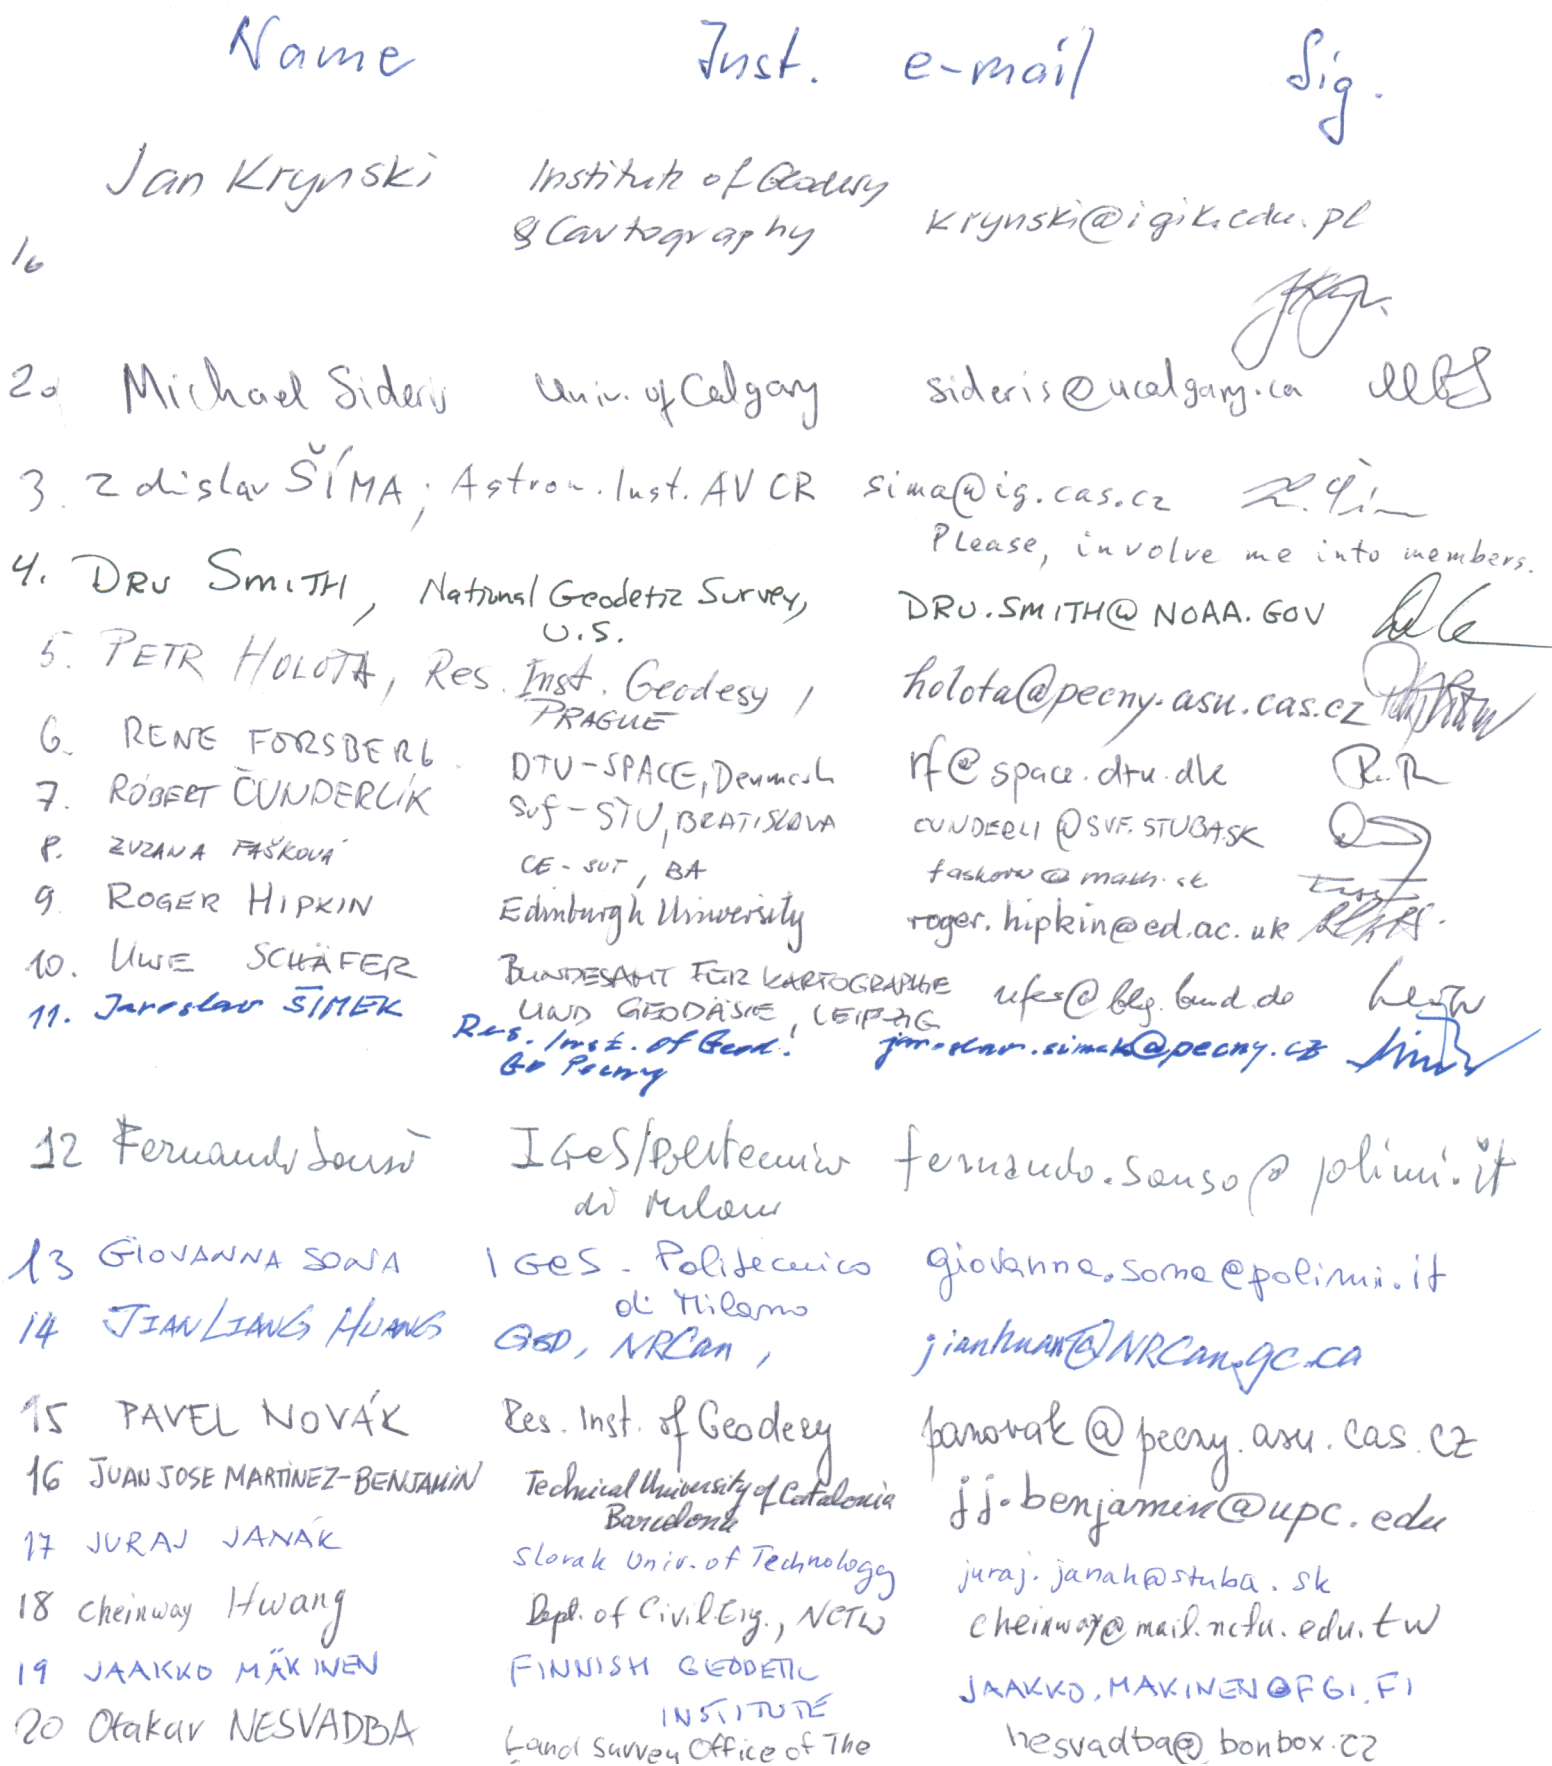 Name Inst. e-mail Sig.
Jan Krynski Institute of Geodesy
& Cartography krynski@igik.edu.pl
1.
2. Michael Sideris Univ. of Calgary sideris@ucalgary.ca
3. Zdislav ŠÍMA; Astron. Inst. AV CR sima@ig.cas.cz
Please, involve me into members.
4. DRU SMITH, National Geodetic Survey, DRU.SMITH@NOAA.GOV
U.S.
5. PETR HOLOTA, Res. Inst. Geodesy, holota@pecny.asu.cas.cz
PRAGUE
6. RENE FORSBERG DTU-SPACE, Denmark rf@space.dtu.dk
7. RÓBERT ČUNDERLÍK SvF-STU, BRATISLAVA CUNDERLI@SVF.STUBA.SK
8. ZUZANA FAŠKOVÁ CE-SUT, BA faskova@math.sk
9. ROGER HIPKIN Edinburgh University roger.hipkin@ed.ac.uk
10. UWE SCHÄFER BUNDESAMT FÜR KARTOGRAPHIE
UND GEODÄSIE, LEIPZIG @bkg.bund.de
11. Jaroslav ŠIMEK Res. Inst. of Geod. jaroslav.simek@pecny.cz
GO Pecny
12 Fernando Sansò IGeS/Politecnico fernando.sanso@polimi.it
di Milano
13 GIOVANNA SONA IGeS - Politecnico giovanna.sona@polimi.it
di Milano
14 JIANLIANG HUANG GSD, NRCan, jianhuan@NRCan.gc.ca
15 PAVEL NOVÁK Res. Inst. of Geodesy panovak@pecny.asu.cas.cz
16 JUAN JOSE MARTINEZ-BENJAMIN Technical University of Catalonia jj.benjamin@upc.edu
Barcelona
17 JURAJ JANÁK Slovak Univ. of Technology juraj.janak@stuba.sk
18 Cheinway Hwang Dept. of Civil Eng., NCTU cheinway@mail.nctu.edu.tw
19 JAAKKO MÄKINEN FINNISH GEODETIC JAAKKO.MAKINEN@FGI.FI
INSTITUTE
20 Otakar NESVADBA Land Survey Office of The nesvadba@bonbox.cz